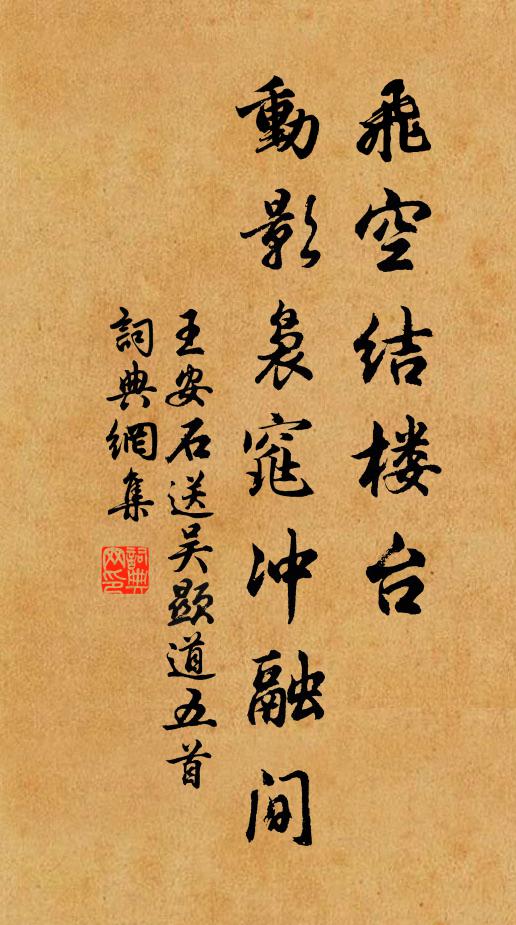 飛空结楼台
動影裊窕冲融间
王安石送吴顕道五首
詞典網集
詞典网印